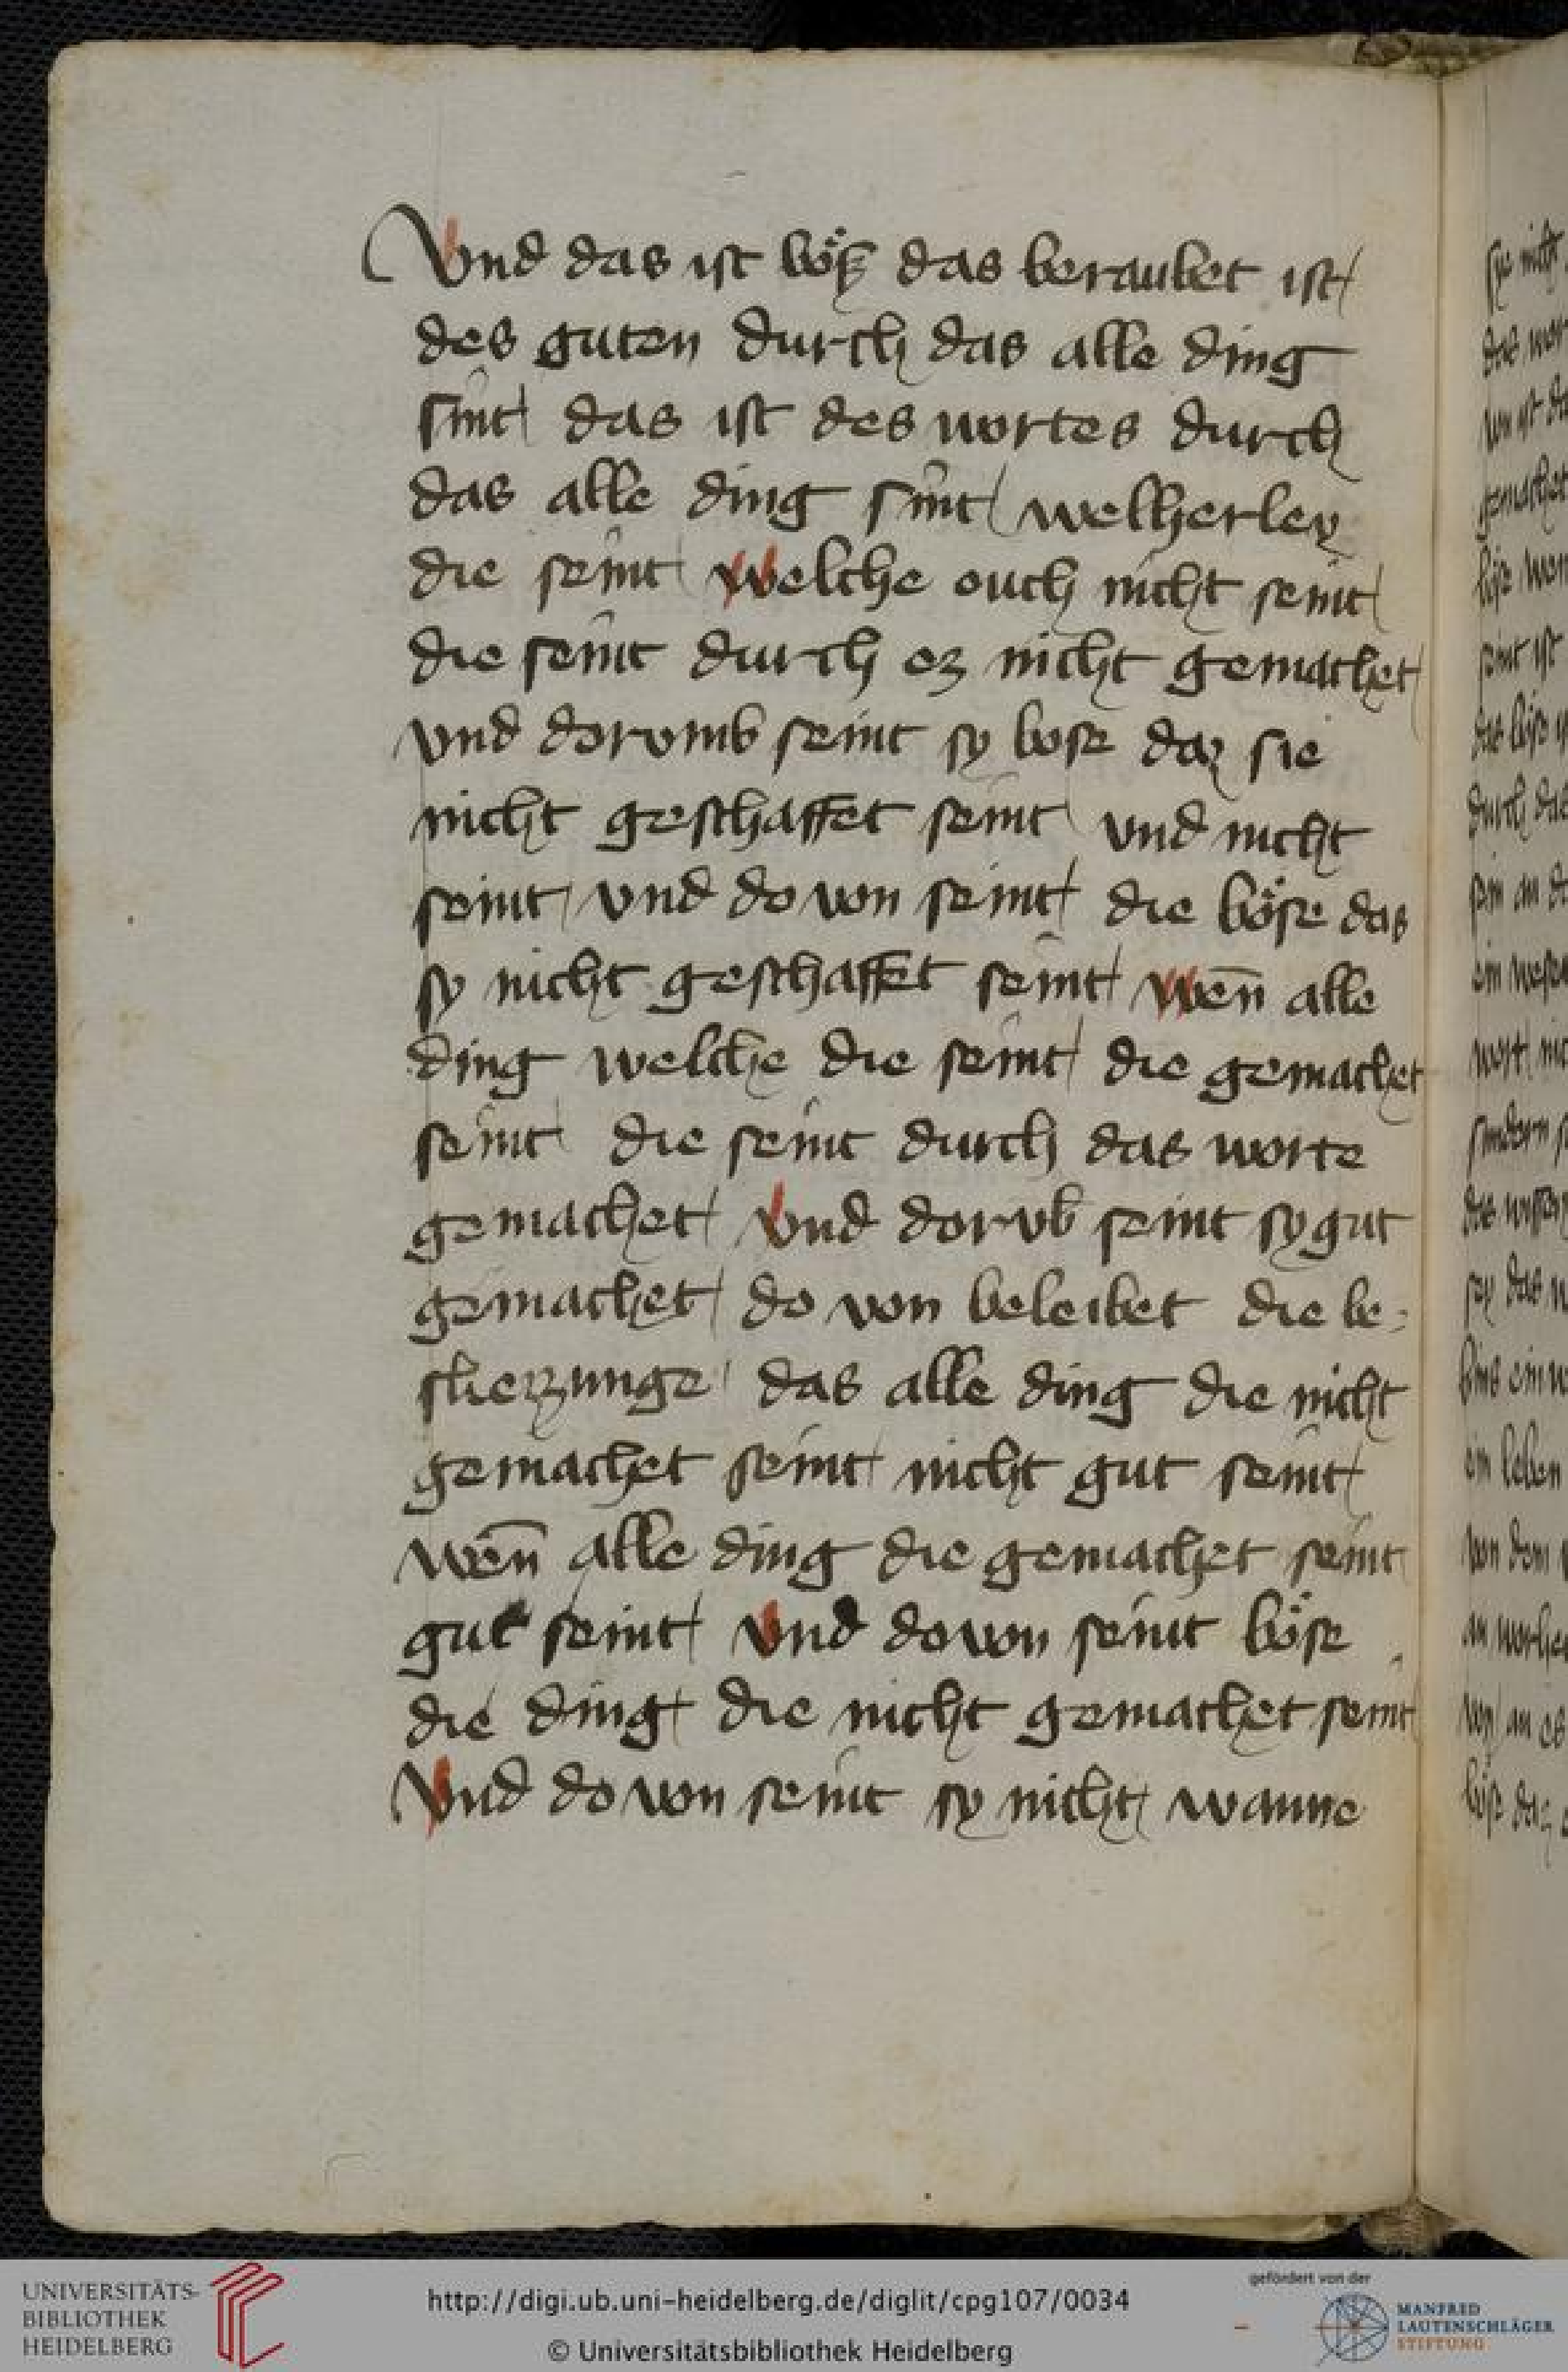 Vnd das ist böß das beraubet ist/
des guten durch das alle ding
sint/ das ist des wortes durch
das alle ding sint/ welherley
die seint/ Welche ouch nicht seint/
die seint durch ez nicht gemachet/
vnd dorvmb seint sy bose daz sie
nicht geschaffet seint/ vnd nicht
seint/ vnd do von seint/ die böse das
sy nicht geschaffet seint/ Wen̄ alle
ding welche die seint/ die gemachet
seint/ die seint durch das worte
gemachet/ Vnd dorvb seint sy gut
gemachet/ do von beleibet die be-
sliezunge/ das alle ding die nicht
gemachet seint/ nicht gut seint/
wen̄ alle ding die gemachet seint
gut seint/ Vnd do von seint böse
die ding/ die nicht gemachet seint
Vnd do von seint sy nicht/ wanne
sye nicht
das wor
von ist
gemachet
seint ist
das böse
durch das
sein an
ein wese
wort/ nic
sey das
ein leben
von dem
UNIVERSITÄTS-
BIBLIOTHEK
HEIDELBERG
http://digi.ub.uni-heidelberg.de/diglit/cpg107/0034
© Universitätsbibliothek Heidelberg
gefördert von der
MANFRED
LAUTENSCHLÄGER
STIFTUNG